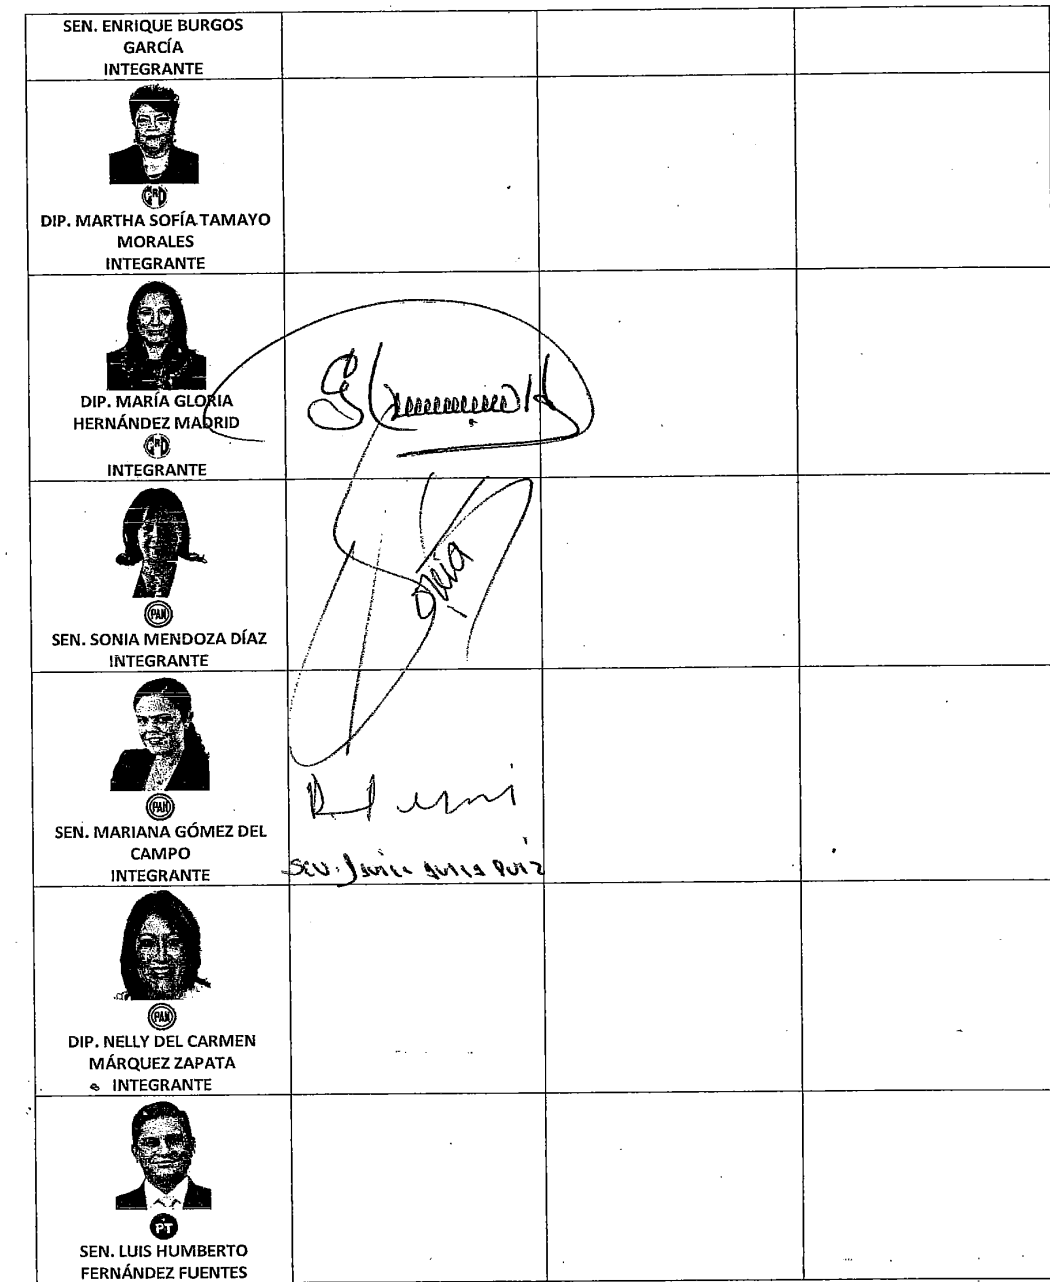 SEN. ENRIQUE BURGOS
GARCÍA
INTEGRANTE
PRD
DIP. MARTHA SOFÍA TAMAYO
MORALES
INTEGRANTE
DIP. MARÍA GLORIA
HERNÁNDEZ MADRID
PRD
INTEGRANTE
PAN
SEN. SONIA MENDOZA DÍAZ
INTEGRANTE
PAN
SEN. MARIANA GÓMEZ DEL
CAMPO
INTEGRANTE
Sen.
PAN
DIP. NELLY DEL CARMEN
MÁRQUEZ ZAPATA
INTEGRANTE
PT
SEN. LUIS HUMBERTO
FERNÁNDEZ FUENTES